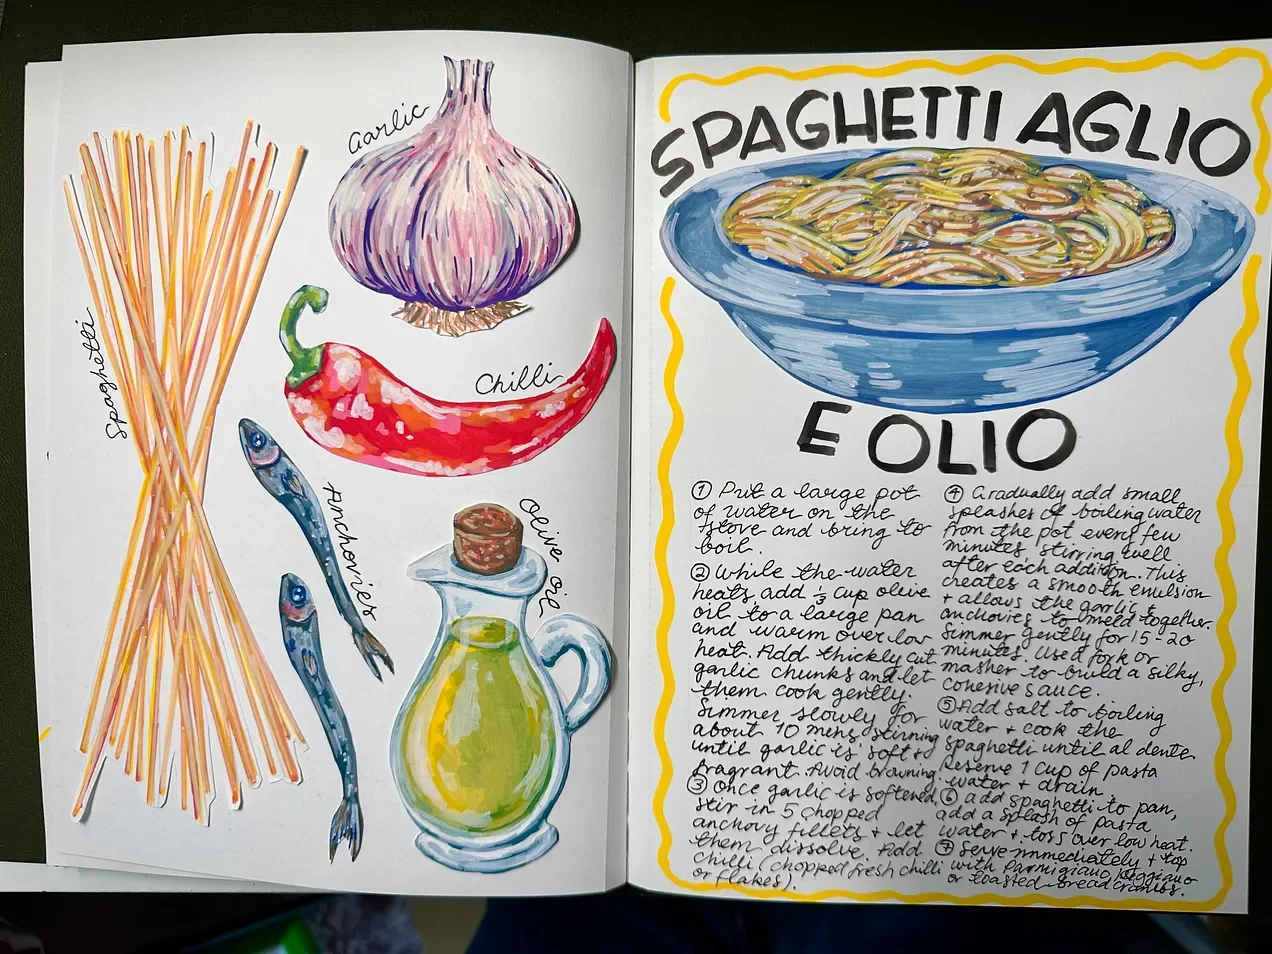 Spaghetti
Garlic
Chilli
Anchovies
Olive oil
SPAGHETTI AGLIO
E OLIO
① Put a large pot
of water on the
stove and bring to
boil.
② While the water
heats, add ⅓ cup olive
oil to a large pan
and warm over low
heat. Add thickly cut
garlic chunks and let
them cook gently.
Simmer slowly for
about 10 mins stirring
until garlic is soft +
fragrant. Avoid browning.
③ Once garlic is softened,
stir in 5 chopped
anchovy fillets + let
them dissolve. Add
chilli (chopped fresh chilli
or flakes).
④ Gradually add small
splashes of boiling water
from the pot every few
minutes stirring well
after each addition. This
creates a smooth emulsion
+ allows the garlic &
anchovies to meld together.
Simmer gently for 15-20
minutes. Use a fork or
masher to build a silky,
cohesive sauce.
⑤ Add salt to boiling
water + cook the
spaghetti until al dente
Reserve 1 cup of pasta
water + drain.
⑥ add spaghetti to pan,
add a splash of pasta
water + toss over low heat.
⑦ Serve immediately + top
with Parmigiano Reggiano
or toasted breadcrumbs.